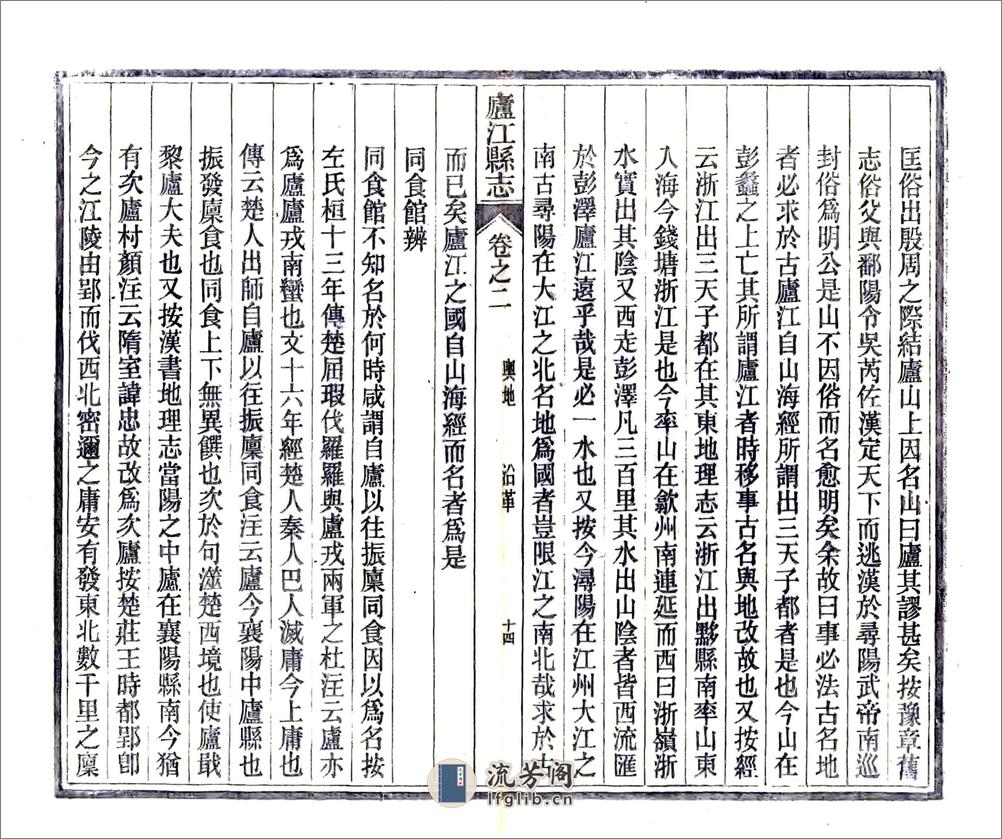 匡俗出殷周之際結廬山上因名山曰廬其謬甚矣按豫章舊
志俗父與鄱陽令吳芮佐漢定天下而逃漢於尋陽武帝南巡
封俗爲明公是山不因俗而名愈明矣余故曰事必法古名地
者必求於古廬江自山海經所謂出三天子都者是也今山在
彭蠡之上亡其所謂廬江者時移事古名與地改故也又按經
云浙江出三天子都在其東地理志云浙江出黟縣南率山東
入海今錢塘浙江是也今率山在歙州南連延而西曰浙嶺浙
水實出其陰又西走彭澤凡三百里其水出山陰者皆西流匯
於彭澤廬江遠乎哉是必一水也又按今潯陽在江州大江之
南古尋陽在大江之北名地爲國者豈限江之南北哉求於古
廬江縣志 卷之二 輿地 沿革 十四
而已矣廬江之國自山海經而名者爲是
同食館辨
同食館不知名於何時咸謂自廬以往振廩同食因以爲名按
左氏桓十三年傳楚屈瑕伐羅羅與盧戎兩軍之杜注云盧亦
爲廬廬戎南蠻也文十六年經楚人秦人巴人滅庸今上庸也
傳云楚人出師自廬以往振廩同食注云廬今襄陽中廬縣也
振發廩食也同食上下無異饌也次於句澨楚西境也使廬戢
黎廬大夫也又按漢書地理志當陽之中廬在襄陽縣南今猶
有次廬村顏注云隋室諱忠故改爲次廬按楚莊王時都郢卽
今之江陵由郢而伐西北密邇之庸安有發東北數千里之廩
流芳阁
lfglib.cn